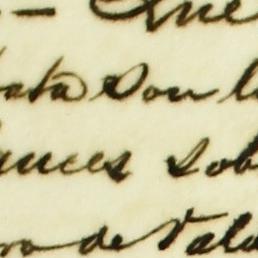 — Que
bata son l
ances sob
ro de Vala